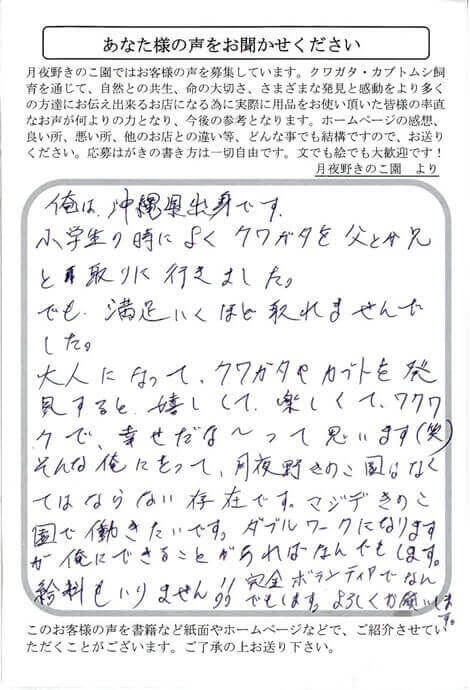 あなた様の声をお聞かせください
月夜野きのこ園ではお客様の声を募集しています。クワガタ・カブトムシ飼
育を通じて、自然との共生、命の大切さ、さまざまな発見と感動をより多く
の方達にお伝え出来るお店になる為に実際に用品をお使い頂いた皆様の率直
なお声が何よりの力となり、今後の参考となります。ホームページの感想、
良い所、悪い所、他のお店との違い等、どんな事でも結構ですので、お送り
ください。応募はがきの書き方は一切自由です。文でも絵でも大歓迎です！
月夜野きのこ園　より
俺は、沖縄県出身です。
小学生の時によくクワガタを父とか兄
と取りに行きました。
でも、満足いくほど取れませんで
した。
大人になって、クワガタやカブトを発
見すると、嬉しくて、楽しくて、ワクワ
クで、幸せだな～って思います(笑)
そんな俺にとって、月夜野きのこ園はなく
てはならない存在です。マジできのこ
園で働きたいです。ダブルワークになります
が俺にできることがあればなんでもします。
給料もいりません!! 完全ボランティアでなん
でもします。よろしくお願いします。
このお客様の声を書籍など紙面やホームページなどで、ご紹介させてい
ただくことがございます。ご了承の上お送り下さい。